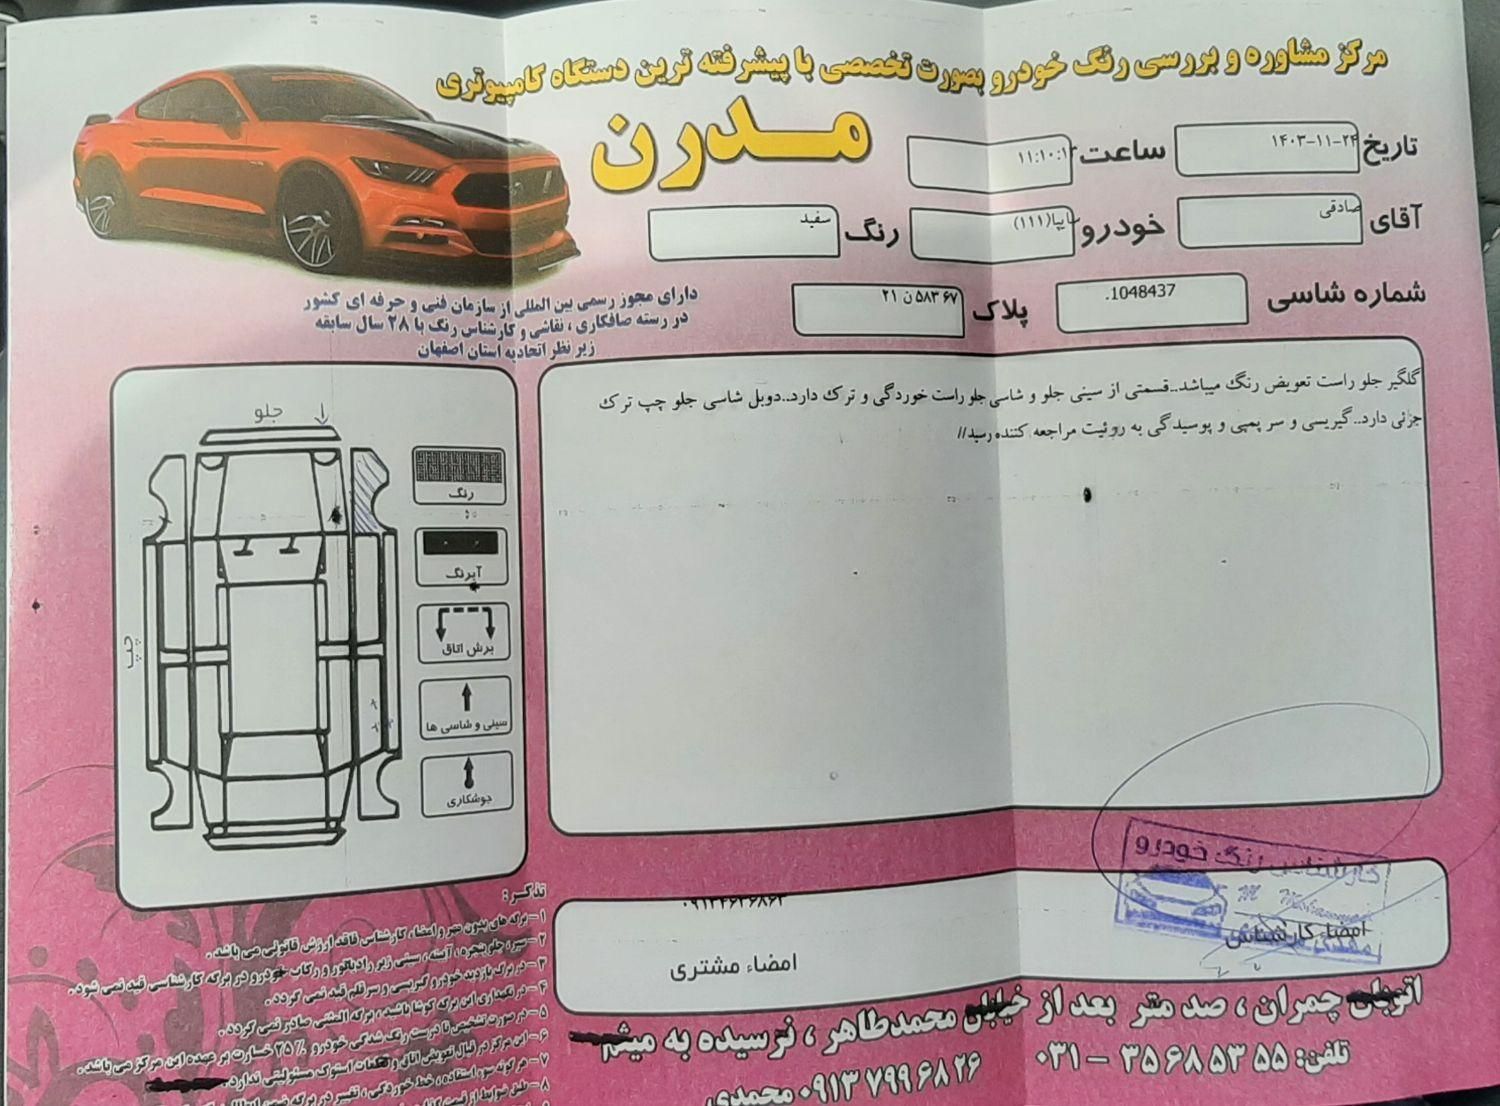 مرکز مشاوره و بررسی رنگ خودرو بصورت تخصصی با پیشرفته ترین دستگاه کامپیوتری
مدرن
تاریخ ۱۴۰۳-۱۱-۲۴ ساعت ۱۱:۱۰:۱۲
آقای صادقی خودرو سایپا(۱۱۱) رنگ سفید
شماره شاسی 1048437. پلاک ۶۷ ۵۸۳ ن ۲۱
دارای مجوز رسمی بین المللی از سازمان فنی و حرفه ای کشور
در رسته صافکاری ، نقاشی و کارشناس رنگ با ۲۸ سال سابقه
زیر نظر اتحادیه استان اصفهان
گلگیر جلو راست تعویض رنگ میباشد..قسمتی از سینی جلو و شاسی جلو راست خوردگی و ترک دارد..دوبل شاسی جلو چپ ترک
جزئی دارد..گیریسی و سر پمپی و پوسیدگی به روئیت مراجعه کننده رسید//
جلو
چپ
رنگ
آبرنگ
برش اتاق
سینی و شاسی ها
جوشکاری
کارشناس رنگ خودرو
امضاء کارشناس
امضاء مشتری
تذکر :
۱ – برگه های بدون مهر و امضاء کارشناس فاقد ارزش قانونی می باشد .
۲ – سپر ، جلو پنجره ، آیینه ، سینی زیر رادیاتور و رکاب خودرو در برگه کارشناسی قید نمی شود .
۳ – در برگ بازدید خودرو گیریسی و سرقلم قید نمی گردد .
۴ – در نگهداری این برگه کوشا باشید ، برگه المثنی صادر نمی گردد .
۵ – در صورت تشخیص نادرست رنگ شدگی خودرو ۲۵٪ خسارت بر عهده این مرکز می باشد .
۶ – این مرکز در قبال تعویض اتاق و قطعات استوک مسئولیتی ندارد .
۷ – هرگونه سوء استفاده ، خط خوردگی ، تغییر در برگه
۸ – طبق ضوابط از قیمت
اتوبان چمران ، صد متر بعد از خیابان محمدطاهر ، نرسیده به میثم
تلفن: ۵۵ ۵۳ ۶۸ ۳۵ – ۰۳۱
۰۹۱۳ ۷۹۹ ۶۸ ۲۶ محمدی